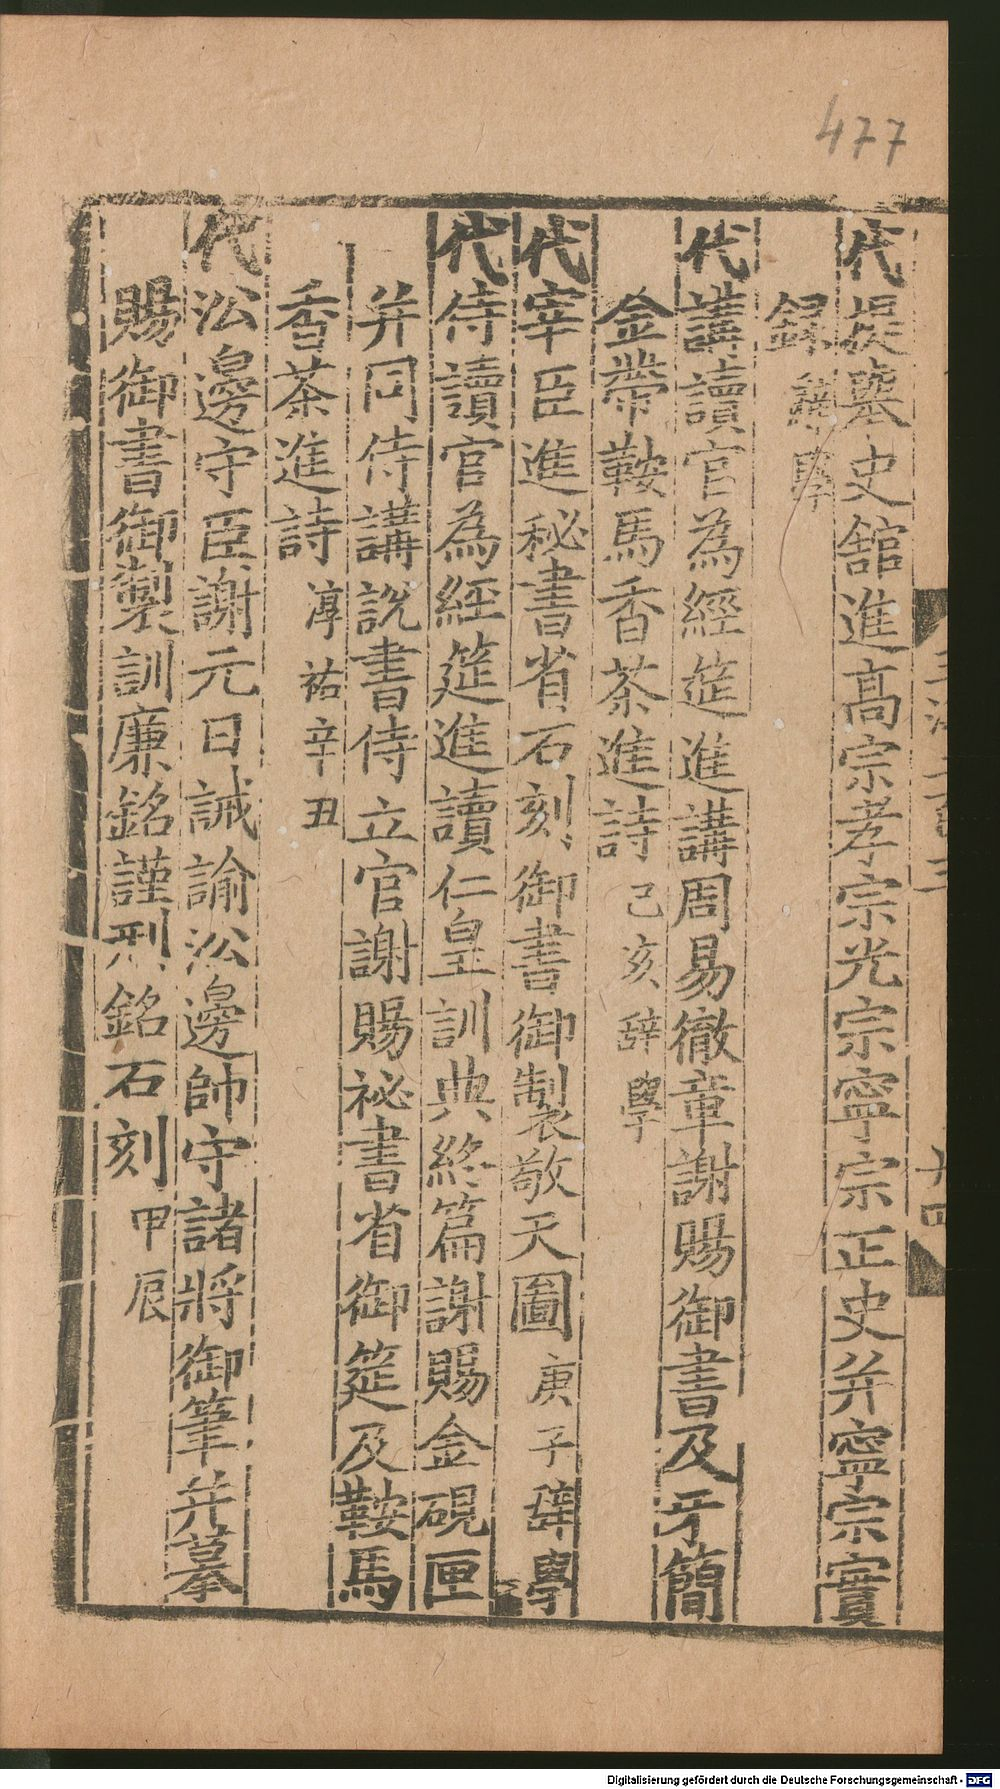 477
代提舉史館進髙宗孝宗光宗寧宗正史并寧宗實
錄辭學
代講讀官為經筵進講周易徹章謝賜御書及牙簡
金帶鞍馬香茶進詩己亥辭學
代宰臣進秘書省石刻御書御製敬天圖庚子辭學
代侍讀官為經筵進讀仁皇訓典終篇謝賜金硯匣
并同侍講說書侍立官謝賜祕書省御筵及鞍馬
香茶進詩淳祐辛丑
代沿邊守臣謝元日誡諭沿邊帥守諸將御筆并摹
賜御書御製訓廉銘謹刑銘石刻甲辰
Digitalisierung gefördert durch die Deutsche Forschungsgemeinschaft - DFG